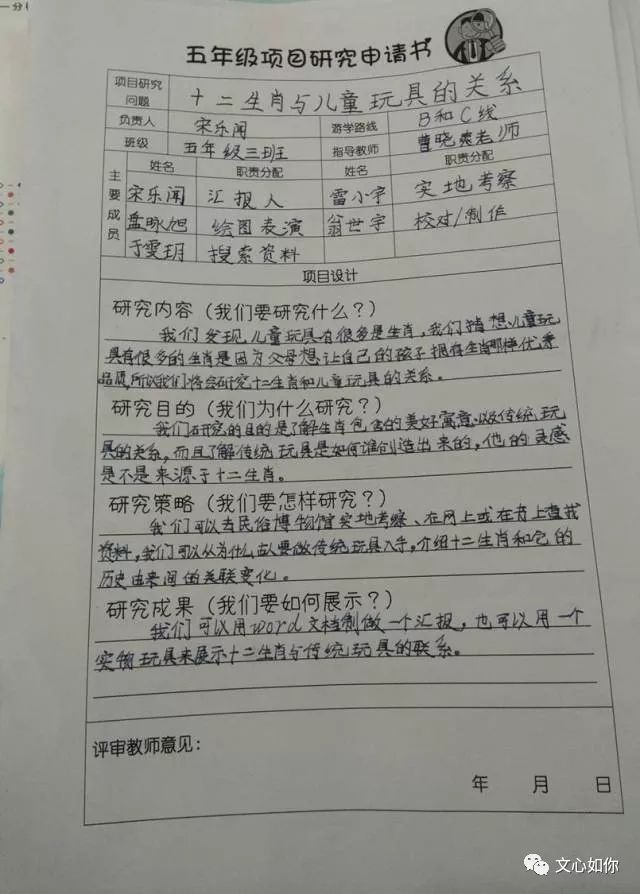 五年级项目研究申请书
项目研究问题 十二生肖与儿童玩具的关系
负责人 宋乐闻 游学路线 B和C线
班级 五年级三班 指导教师 曹晓爽老师
主要成员 姓名 职责分配 姓名 职责分配
宋乐闻 汇报人 雷小宇 实地考察
孟咏旭 绘图表演 翁世宇 校对/制作
于雯玥 搜索资料
项目设计
研究内容（我们要研究什么？）
我们发现儿童玩具有很多是生肖，我们猜想儿童玩
具有很多的生肖是因为父母想让自己的孩子拥有生肖那样优秀
品质，所以我们将会研究十二生肖和儿童玩具的关系。
研究目的（我们为什么研究？）
我们研究的目的是了解生肖包含的美好寓意以及传统玩
具的关系，而且了解传统玩具是如何谁创造出来的，他的灵感
是不是来源于十二生肖。
研究策略（我们要怎样研究？）
我们可以去民俗博物馆实地考察、在网上或在书上查找
资料，我们可以从为什么古人要做传统玩具入手，介绍十二生肖和它的
历史由来间的关联变化。
研究成果（我们要如何展示？）
我们可以用word文档制做一个汇报，也可以用一个
实物玩具来展示十二生肖与传统玩具的联系。
评审教师意见：
年 月 日
文心如你